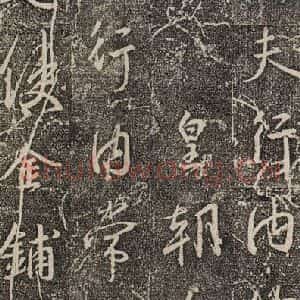 夫行
皇朝
行内常
使金鋪
shufawang.cn